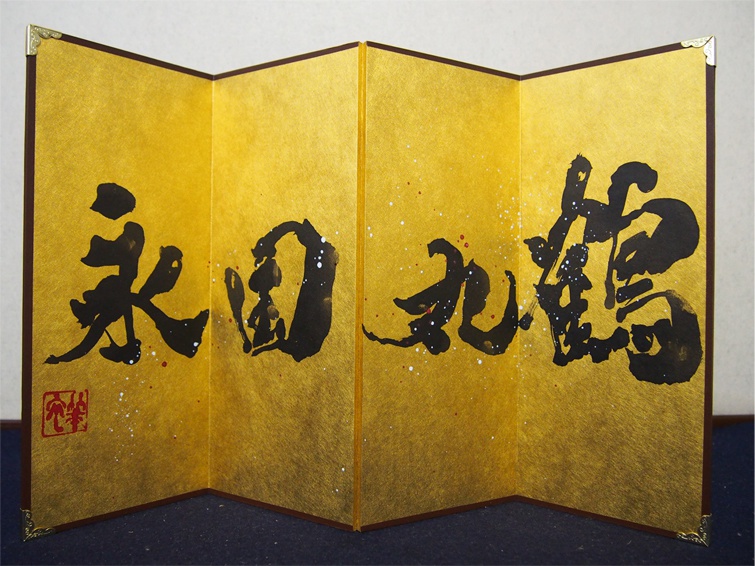 鶴丸国永